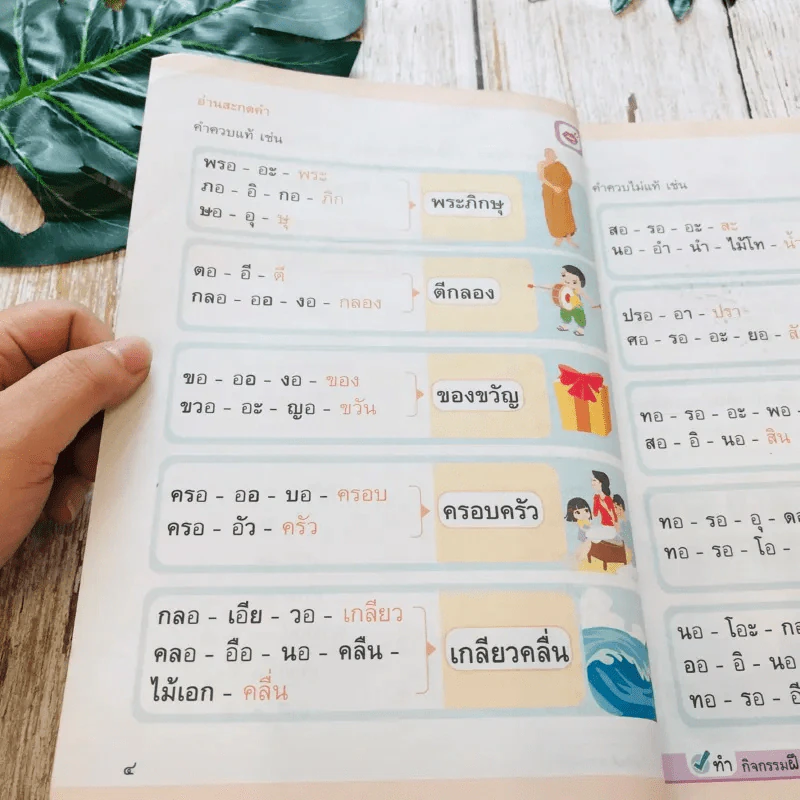 อ่านสะกดคำ
คำควบแท้ เช่น
พรอ - อะ - พระ
ภอ - อิ - กอ - ภิก
ษอ - อุ - ษุ
พระภิกษุ
ตอ - อี - ตี
กลอ - ออ - งอ - กลอง
ตีกลอง
ขอ - ออ - งอ - ของ
ขวอ - อะ - ญอ - ขวัน
ของขวัญ
ครอ - ออ - บอ - ครอบ
ครอ - อัว - ครัว
ครอบครัว
กลอ - เอีย - วอ - เกลียว
คลอ - อือ - นอ - คลืน -
ไม้เอก - คลื่น
เกลียวคลื่น
๔
คำควบไม่แท้ เช่น
สอ - รอ - อะ - สะ
นอ - อำ - นำ - ไม้โท -
ปรอ - อา - ปรา
ศอ - รอ - อะ - ยอ -
ทอ - รอ - อะ - พอ -
สอ - อิ - นอ - สิน
ทอ - รอ - อุ -
ทอ - รอ - โอ -
นอ - โอะ -
ออ - อิ - นอ
ทอ - รอ -
ทำ กิจกรรม